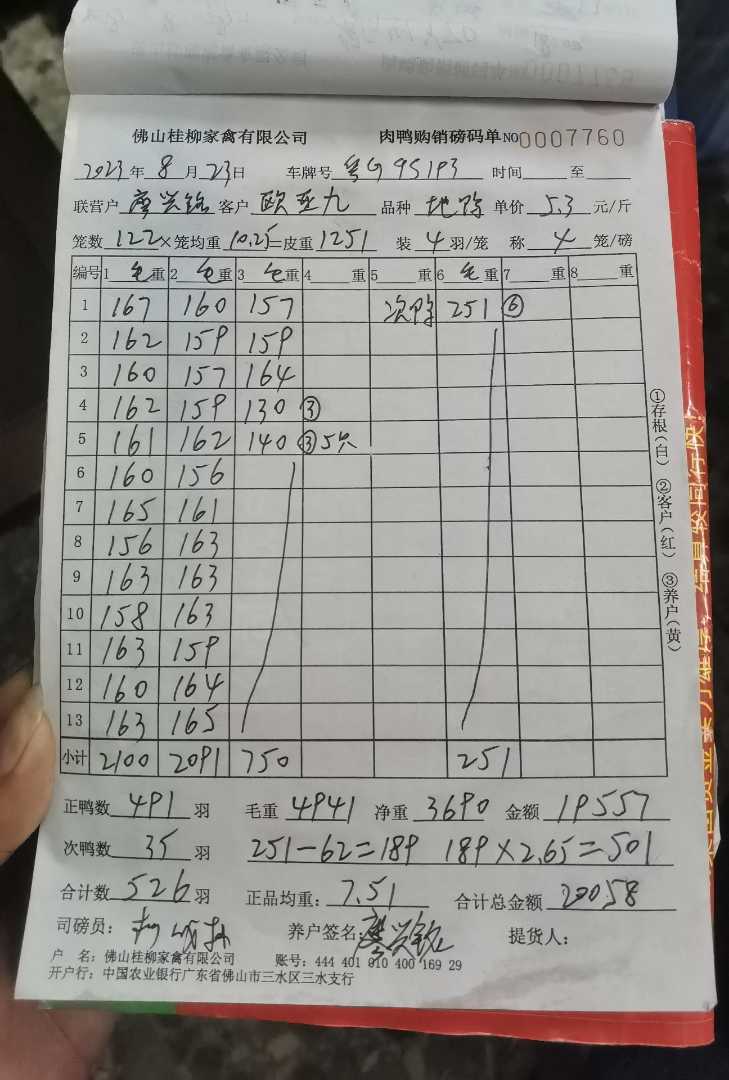 佛山桂柳家禽有限公司 肉鸭购销磅码单 NO 0007760
2023年 8 月 23日 车牌号 粤G95193 时间 至
联营户 廖兴铭 客户 欧亚九 品种 地鸭 单价 5.3 元/斤
笼数 122 ×笼均重 10.25 =皮重 1251 装 4 羽/笼 称 4 笼/磅
编号 1 毛重 2 毛重 3 毛重 4 重 5 重 6 毛重 7 重 8 重
1 167 160 157 次鸭 251 ⑥
2 162 159 159
3 160 157 164
4 162 159 130 ③
5 161 162 140 ③5只
6 160 156
7 165 161
8 156 163
9 163 163
10 158 163
11 163 159
12 160 164
13 163 165
小计 2100 2091 750 251
正鸭数 491 羽 毛重 4941 净重 3690 金额 19557
次鸭数 35 羽 251-62=189 189×2.65=501
合计数 526 羽 正品均重: 7.51 合计总金额 20058
司磅员: 养户签名: 廖兴铭 提货人:
户 名: 佛山桂柳家禽有限公司 账号: 444 401 010 400 169 29
开户行: 中国农业银行广东省佛山市三水区三水支行
①存根(白) ②客户(红) ③养户(黄)